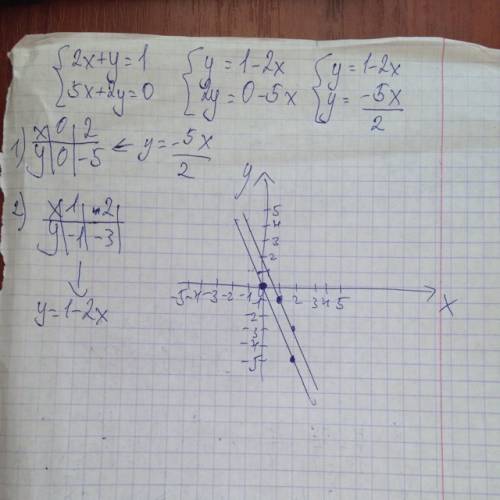 {2x+y=1 {y=1-2x {y=1-2x
{5x+2y=0 {2y=0-5x {y=-5x/2
1) x|0|2
y|0|-5 ← y=-5x/2
2) x|1|2|
y|-1|-3|
y=1-2x
y
5
4
3
2
-5 -4 -3 -2 -1 1 2 3 4 5
x
-2
-3
-4
-5